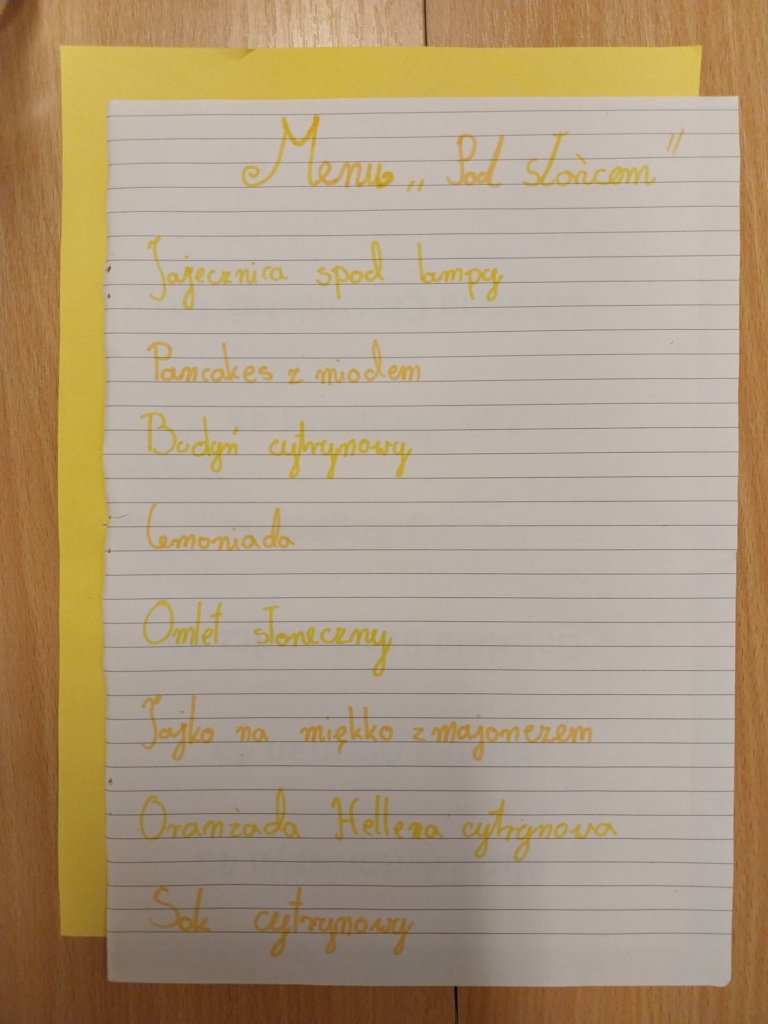 Menu „Pod słońcem"
Jajecznica spod lampy
Pancakes z miodem
Budyń cytrynowy
Lemoniada
Omlet słoneczny
Jajko na miękko z majonezem
Oranżada Hellena cytrynowa
Sok cytrynowy